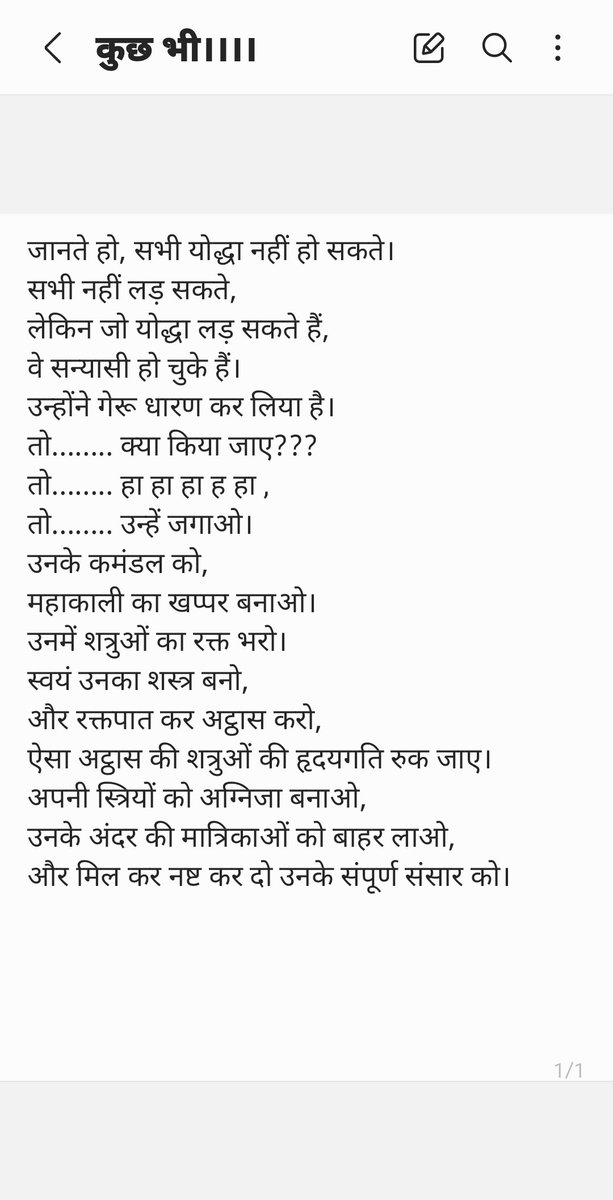 कुछ भी।।।।
जानते हो, सभी योद्धा नहीं हो सकते।
सभी नहीं लड़ सकते,
लेकिन जो योद्धा लड़ सकते हैं,
वे सन्यासी हो चुके हैं।
उन्होंने गेरू धारण कर लिया है।
तो........ क्या किया जाए???
तो........ हा हा हा ह हा ,
तो........ उन्हें जगाओ।
उनके कमंडल को,
महाकाली का खप्पर बनाओ।
उनमें शत्रुओं का रक्त भरो।
स्वयं उनका शस्त्र बनो,
और रक्तपात कर अट्ठास करो,
ऐसा अट्ठास की शत्रुओं की हृदयगति रुक जाए।
अपनी स्त्रियों को अग्निजा बनाओ,
उनके अंदर की मात्रिकाओं को बाहर लाओ,
और मिल कर नष्ट कर दो उनके संपूर्ण संसार को।
1/1